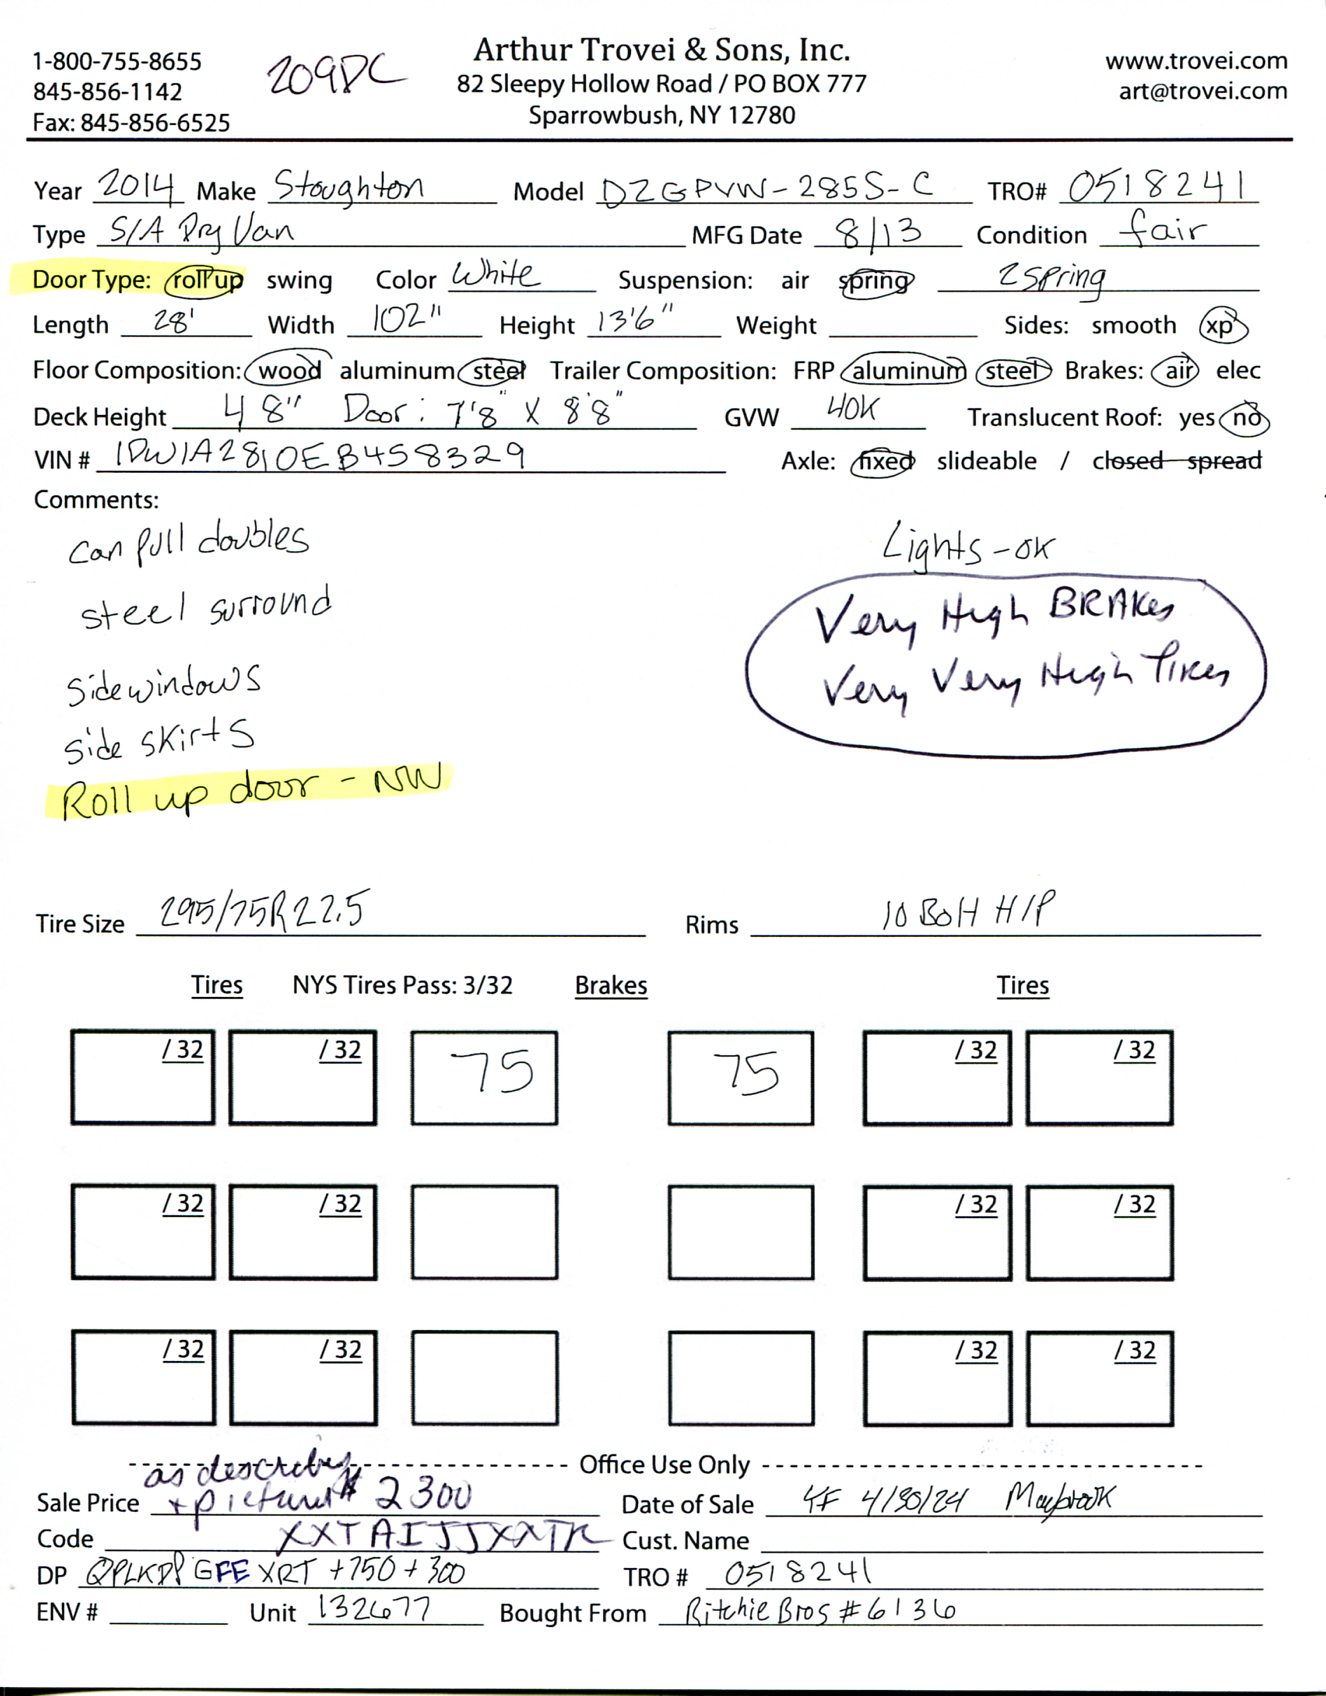 1-800-755-8655
845-856-1142
Fax: 845-856-6525
209DC
Arthur Trovei & Sons, Inc.
82 Sleepy Hollow Road / PO BOX 777
Sparrowbush, NY 12780
www.trovei.com
art@trovei.com
Year 2014 Make Stoughton Model DZGPVW-285S-C TRO# 0518241
Type S/A Dry Van MFG Date 8/13 Condition fair
Door Type: roll up swing Color White Suspension: air spring 2 spring
Length 28' Width 102" Height 13'6" Weight Sides: smooth xp
Floor Composition: wood aluminum steel Trailer Composition: FRP aluminum steel Brakes: air elec
Deck Height 48" Door: 7'8" X 8'8" GVW 40K Translucent Roof: yes no
VIN # 1DW1A2810EB458329 Axle: fixed slideable / closed spread
Comments:
can pull doubles
Lights-ok
steel surround
Very High BRAKes
Very Very High Tires
sidewindows
side skirts
Roll up door - NW
Tire Size 295/75R22.5 Rims 10 BoH H/P
Tires NYS Tires Pass: 3/32 Brakes Tires
/ 32 / 32 75 75 / 32 / 32
/ 32 / 32 / 32 / 32
/ 32 / 32 / 32 / 32
Office Use Only
as describe
Sale Price + pictures $ 2300 Date of Sale 4/30/24 Maybrook
Code XXTAIJJXXTR Cust. Name
DP QPLKDP GFE XRT +750 + 300 TRO # 0518241
ENV # Unit 132677 Bought From Ritchie Bros #6136